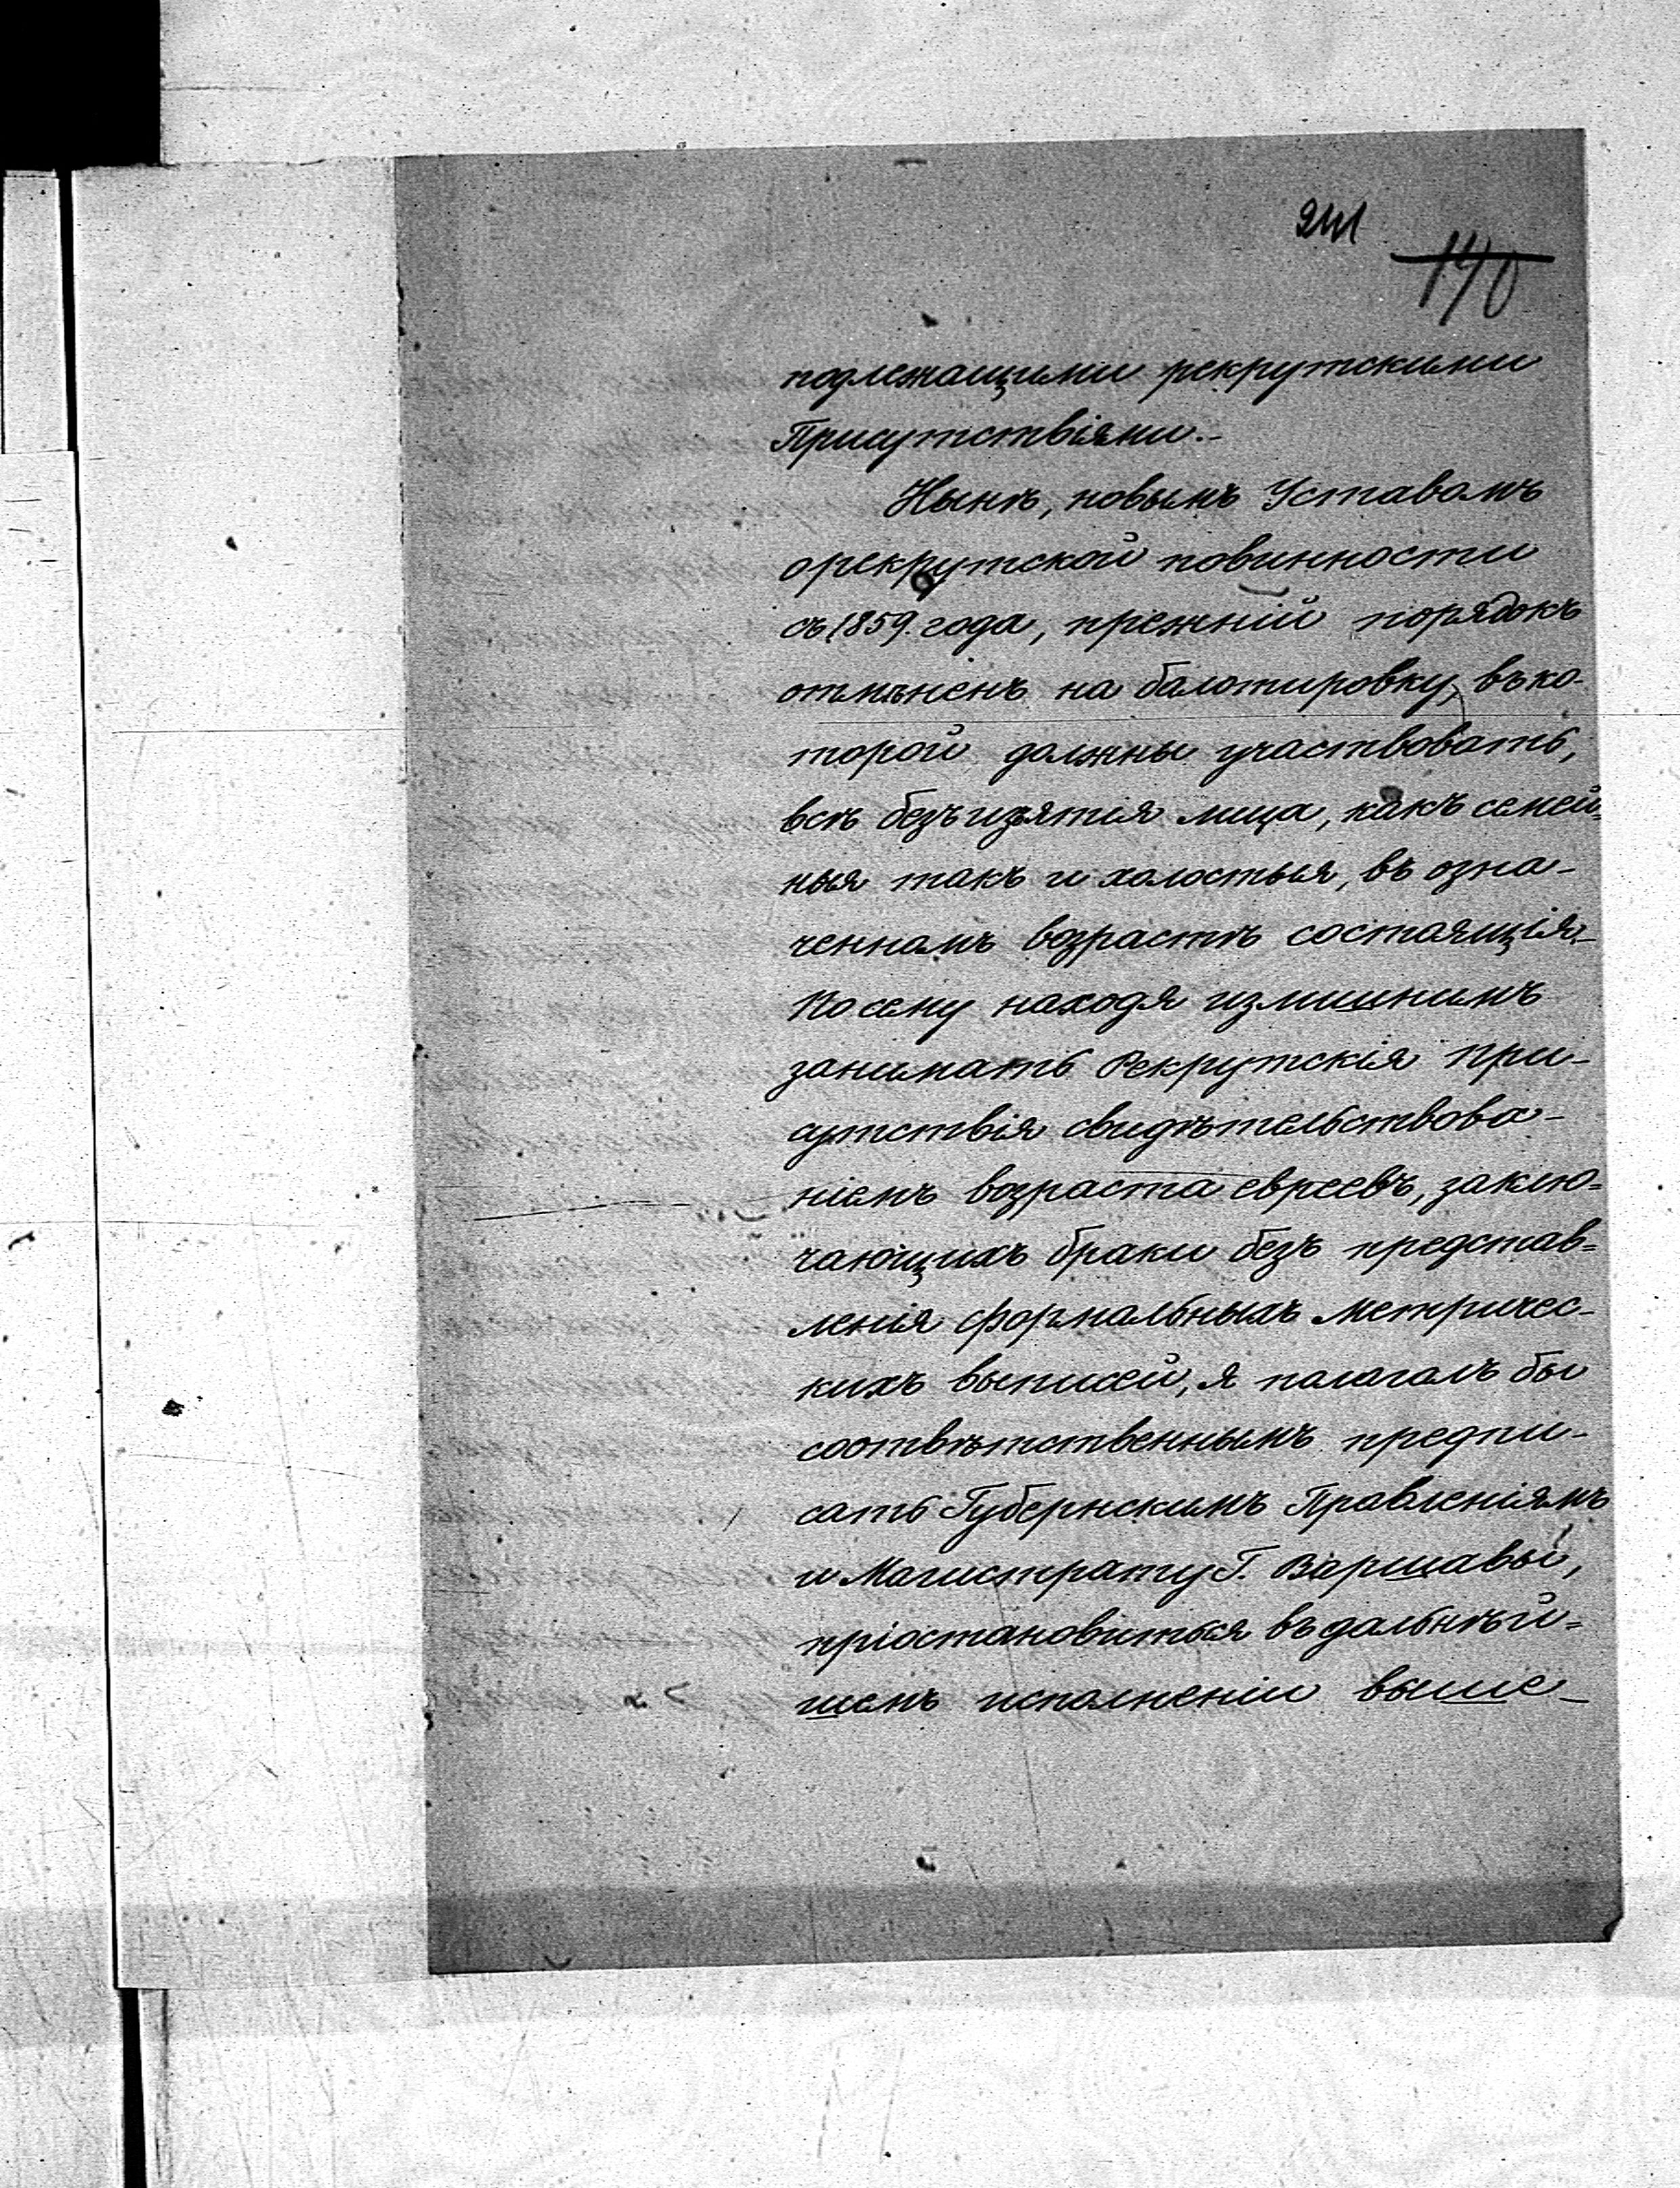 241
140
подлежащими рекрутскими
Присутствіями.-
Нынѣ, новымъ Уставомъ
о рекрутской повинности
съ 1859. года, прежній порядокъ
отмѣненъ на балотировку, въ ко-
торой должны участвовать,
всѣ безъ изъятія лица, какъ семей=
ныя такъ и холостыя, въ озна-
ченномъ возрастѣ состоящія.-
По сему находя излишнимъ
занимать Рекрутскія При-
сутствія свидѣтельствова-
ніемъ возраста евреевъ, заклю=
чающихъ браки безъ представ=
ленія формальныхъ метричес-
кихъ выписей, я полагалъ бы
соотвѣтственнымъ предпи-
сать Губернскимъ Правленіямъ
и Магистрату Г. Варшавы,
пріостановиться въ дальнѣй=
шемъ исполненіи выше-